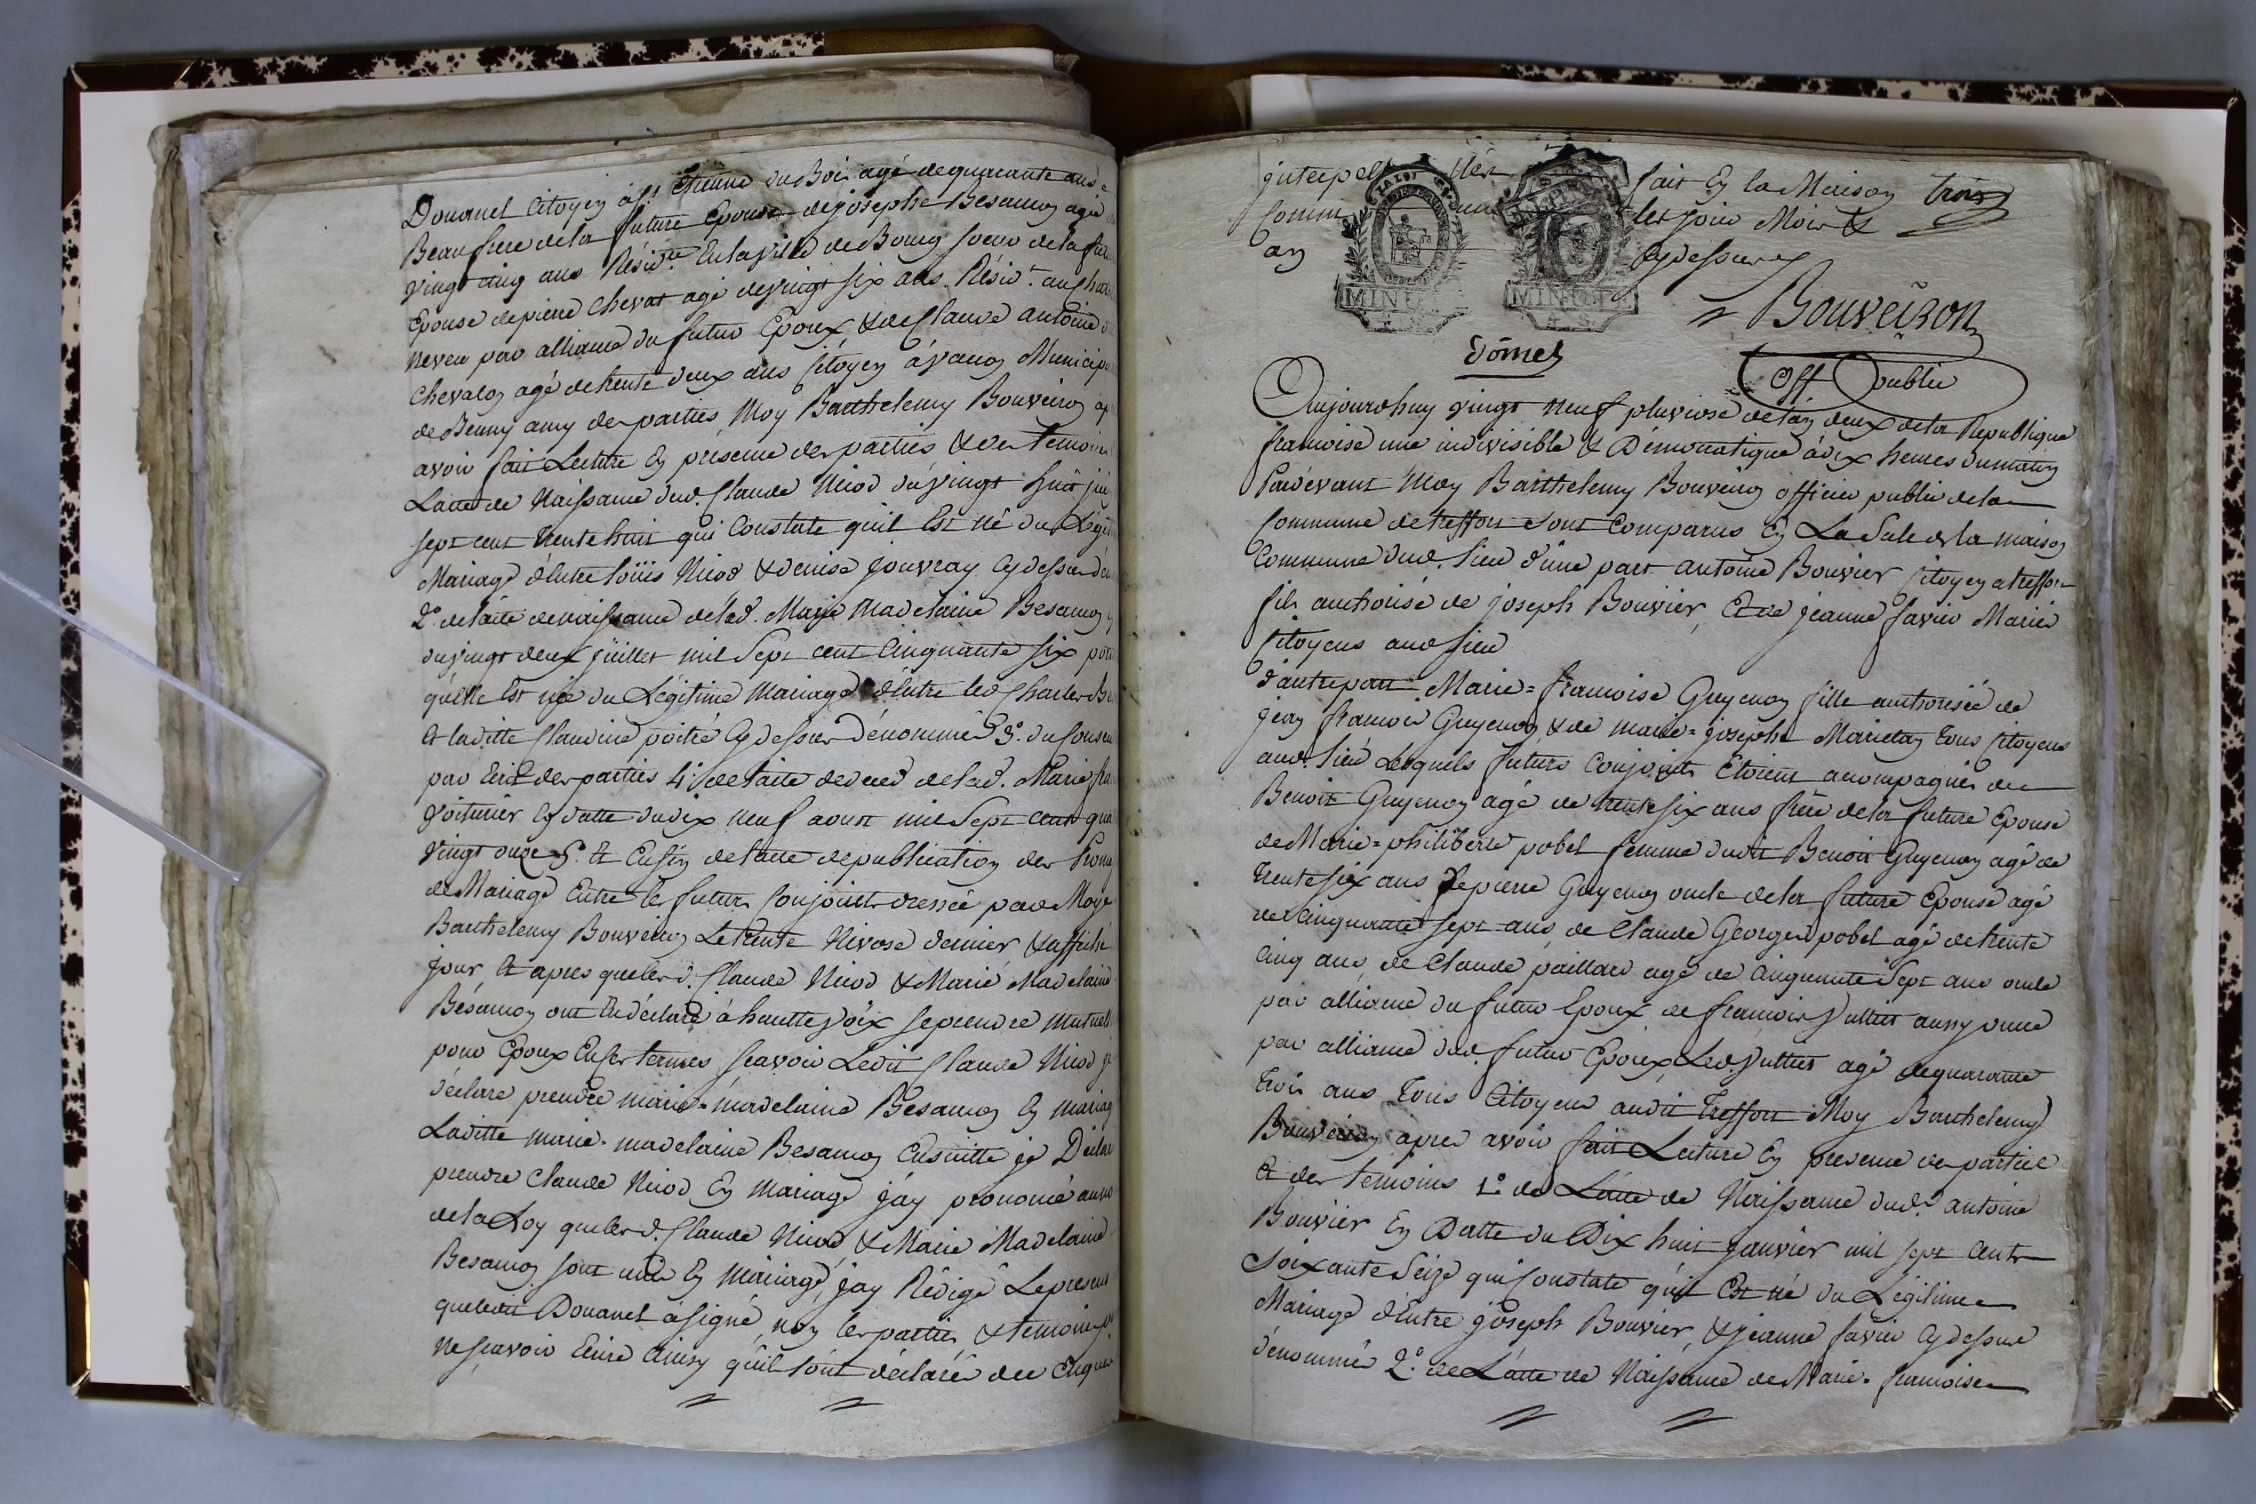 Douanel Citoyen à St étienne du Bois agé de quarante ans
Beaufrere de la future Epouse de josephe Besançon agé
vingt cinq ans Résidte en la ville de Bourg soeur de la
Epouse de pierre Chevat agé de vingt six ans Résidt
neveu par alliance du futur Epoux & de Claude antoine
Chevalon agé de trente deux ans Citoyen à Municip
de Beuny amy des parties, Moy Barthelemy Bouveiron ap
avoir fait Lecture En présence des parties & des temoins
Lacte de Naissance dud. Claude Niod du vingt huit
sept cent trente huit qui Constate quil Est né du Légit
Mariage d'Entre loüis Niod & denise jouvray Cy dessus dé
2º. de lacte de naissance de lad. Marie Madelaine Besançon
du vingt deux juillet mil Sept cent Cinquante six
quelle Est née du Légitime Mariage d'Entre led Charles Be
Et laditte Claudine poitié Cy dessus dénommé 3º. du Consen
par Ecrit des parties 4º. de lacte de deces de lad. Marie
voiturier En datte du dix neuf aoust mil Sept cent qua
vingt onze 5. Et Enfin de lacte de publication des Prom
de Mariage Entre les futurs Conjoints dressée par Moy
Barthelemy Bouveiron Le trente Nivose dernier & affiché
jour Et apres que lesd. Claude Niod & Marie Madelaine
Bésançon ont Eu déclaré à hautte voix se prendre Mutuell
pour Epoux En ses termes scavoir Ledit Claude Niod
déclare prendre marie=madelaine Bésançon En mariag
Laditte marie-madelaine Besançon Ensuitte je Déclar
prendre Claude Niod En Mariage j'ay prononcé au no
de la Loy que lesd. Claude Niod & Marie Madelaine
Besançon sont unis En Mariage, jay Rédigé Le present
que ledit Douanel à signé, non les parties & temoins
Ne scavoir Ecrire ainsy qu'il sont déclaré de Enque
interpel fait En la Maison trois
Comm les jour Mois &
an Cydessus
LA LOI
MINUTE
MINUTE
Bouveiron
Off public
d'ômet
Aujourdhuy vingt neuf pluviose de lan deux de la Republique
francoise une indivisible & Démocratique à dix heures du matin
Pardevant Moy Barthelemy Bouveiron officier public de la
Commune de treffort sont Comparus En La Sale de la maison
Commune dud. lieu d'une part antoine Bouvier Citoyen a treffort
fils authorisé de joseph Bouvier, Et de jeanne favier Mariés
Citoyens aud lieu
d'autre part Marie=francoise Guyenon fille authorisée de
jean francois Guyenon & de marie=josephe Marietan tous Citoyens
aud. lieu Lesquels futurs Conjoints Etoient acompagnés de
Benoit Guyenon agé de trente six ans frère de la future Epouse
de Marie=philiberte pobel femme dudit Benoit Guyenon agé de
trente six ans de pierre Guyenon oncle de la future Epouse agé
de Cinquante sept ans de Claude George pobel agé de trente
Cinq ans, de Claude paillard agé de Cinquante Sept ans oncle
par alliance du futur Epoux de francois Vulliet aussy oncle
par alliance dud. futur Epoux Led. Vulliet agé de quarante
trois ans tous Citoyens audit treffort Moy Barthelemy
Bouveiron apres avoir fait Lecture En presence des parties
Et des temoins 1º. de Lacte de Naissance dud. antoine
Bouvier En Datte du Dix huit janvier mil sept cents
Soixante Seize qui Constate qu'il Est né du Légitime
Mariage d'Entre joseph Bouvier, & jeanne favier Cy dessus
dénommé 2º. de Lacte de Naissance de Marie-francoise